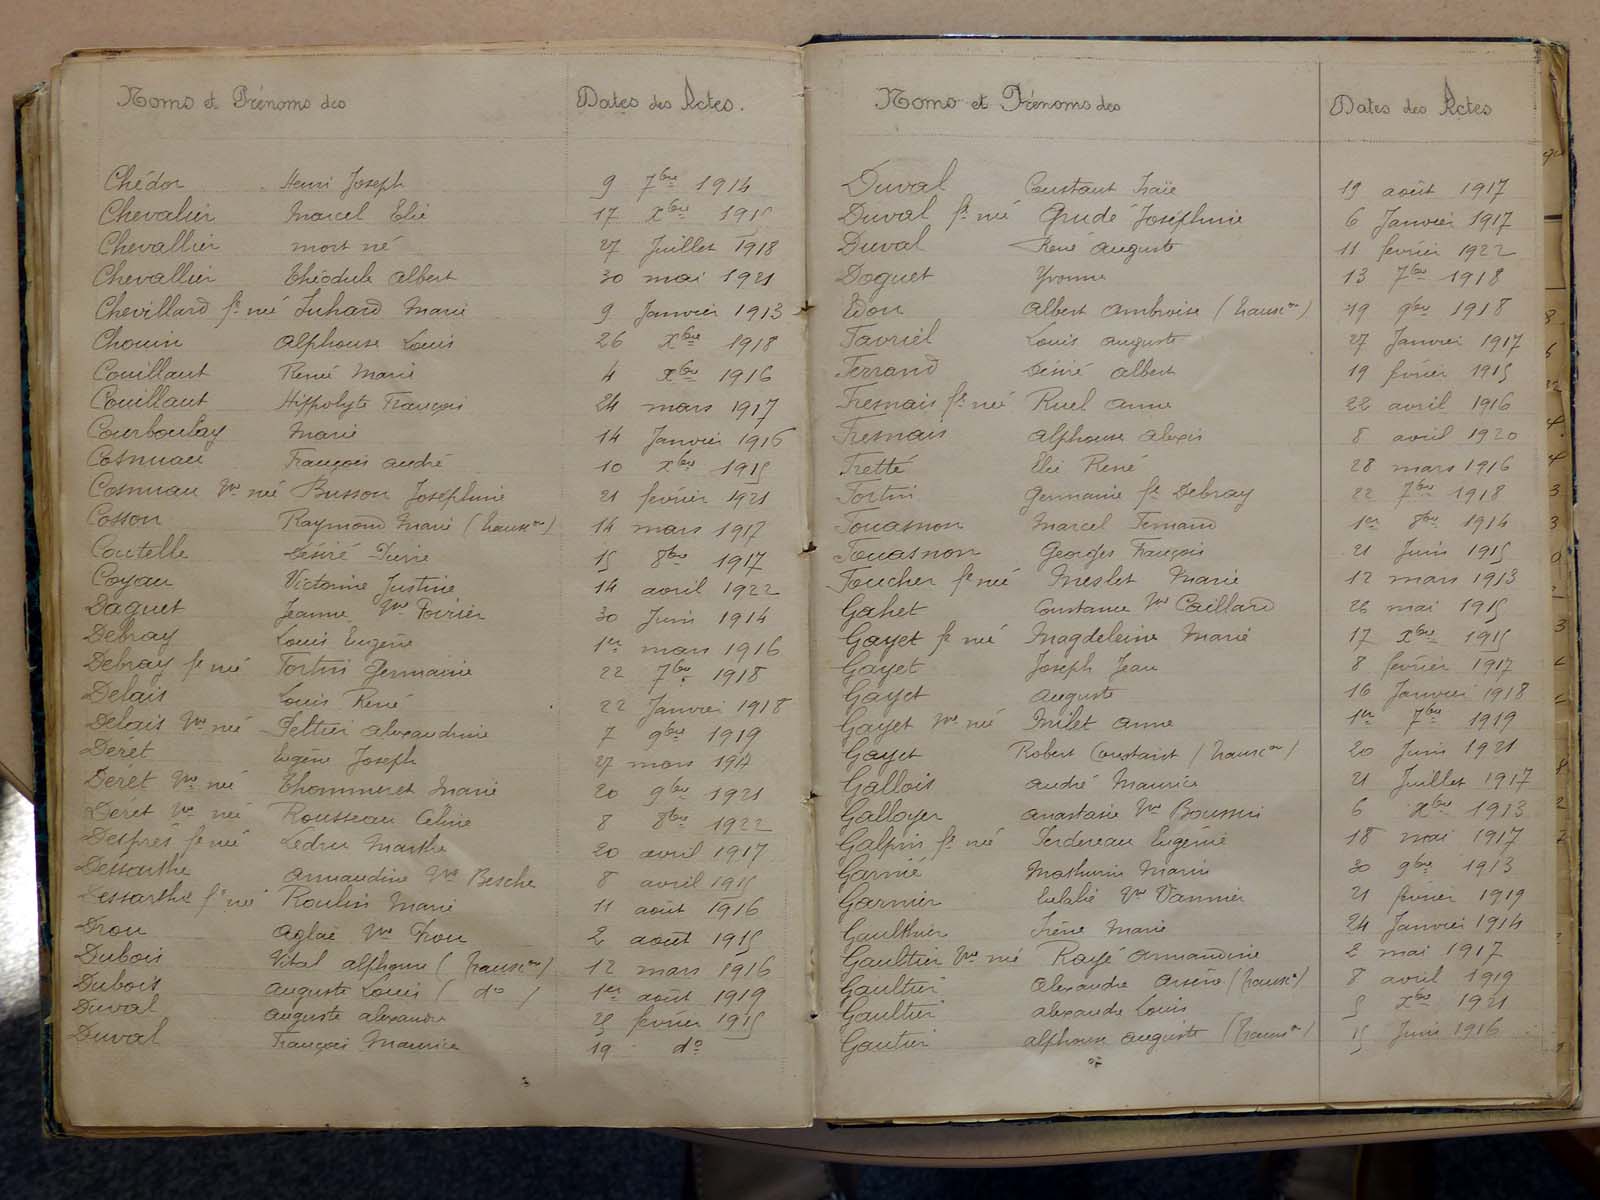 Noms et Prénoms des Dates des Actes.
Chédor Henri Joseph 9 7bre 1914
Chevalier Marcel Elie 17 Xbre 1915
Chevallier mort né 27 Juillet 1918
Chevallier Théodule Albert 30 mai 1921
Chevillard fe née Juhard Marie 9 Janvier 1913
Chouin Alphonse Louis 26 Xbre 1918
Couillaut René Marie 4 Xbre 1916
Couillaut Hippolyte François 24 mars 1917
Courboulay Marie 14 Janvier 1916
Cosnuau François André 10 Xbre 1915
Cosnuau Vve née Busson Joséphine 21 février 1921
Cosson Raymond Marie (transon) 14 mars 1917
Coutelle Désiré Pierre 15 8bre 1917
Coyau Victorine Justine 14 avril 1922
Daguet Jeanne Vve Poirier 30 Juin 1914
Debray Louis Eugène 1er mars 1916
Debray fe née Fortin Germaine 22 7bre 1918
Delais Louis René 22 Janvier 1918
Delais Vve née Peltier Alexandrine 7 9bre 1919
Derét Eugène Joseph 27 mars
Derét Vve née Thommeret Marie 20 9bre 1921
Derét Vve née Rousseau Céline 8 8bre 1922
Després fe née Ledru Marthe 20 avril 1917
Dessarthe Armandine Vve Besche 8 avril 1915
Dessarthe fe née Roulin Marie 11 août 1916
Drou Aglaé Vve Drou 2 août 1915
Dubois Vital Alphonse (transon) 12 mars 1916
Dubois Auguste Louis (do) 1er août 1919
Duval Auguste Alexandre 25 février 1915
Duval François Maurice 19 do
Noms et Prénoms des Dates des Actes
Duval Constant Isaïe 19 août 1917
Duval fe née Grudé Joséphine 6 Janvier 1917
Duval René Auguste 11 février 1922
Doguet Yvonne 13 7bre 1918
Edon Albert Ambroise (transon) 19 9bre 1918
Favriel Louis Auguste 27 Janvier 1917
Ferrand Désiré Albert 19 février 1915
Fresnais fe née Ruel Anne 22 avril 1916
Fresnais Alphonse Alexis 8 avril 1920
Fretté Elie René 28 mars 1916
Fortin Germaine fe Debray 22 7bre 1918
Fouasnon Marcel Fernand 1er 8bre 1914
Fouasnon Georges François 21 Juin 1915
Foucher fe née Meslet Marie 12 mars 1913
Gahet Constance Vve Caillard 26 mai 1915
Gayet fe née Magdeleine Marie 17 Xbre 1915
Gayet Joseph Jean 8 février 1917
Gayet Auguste 16 Janvier 1918
Gayet Vve née Milet Anne 1er 7bre 1919
Gayet Robert Constant (transon) 20 Juin 1921
Gallois André Maurice 21 Juillet 1917
Galloyer Anastasie Vve Boussin 6 Xbre 1913
Galpin fe née Ferdereau Eugénie 18 mai 1917
Garnié Mathurin Marin 30 9bre 1913
Garnier Eulalie Vve Vannier 21 février 1919
Gaulthier Irène Marie 24 Janvier 1914
Gaultier Vve née Rayé Armandine 2 mai 1917
Gaultier Alexandre Arsène (transon) 8 avril 1919
Gaultier Alexandre Louis 5 Xbre 1921
Gautier Alphonse Auguste (transon) 15 Juin 1916